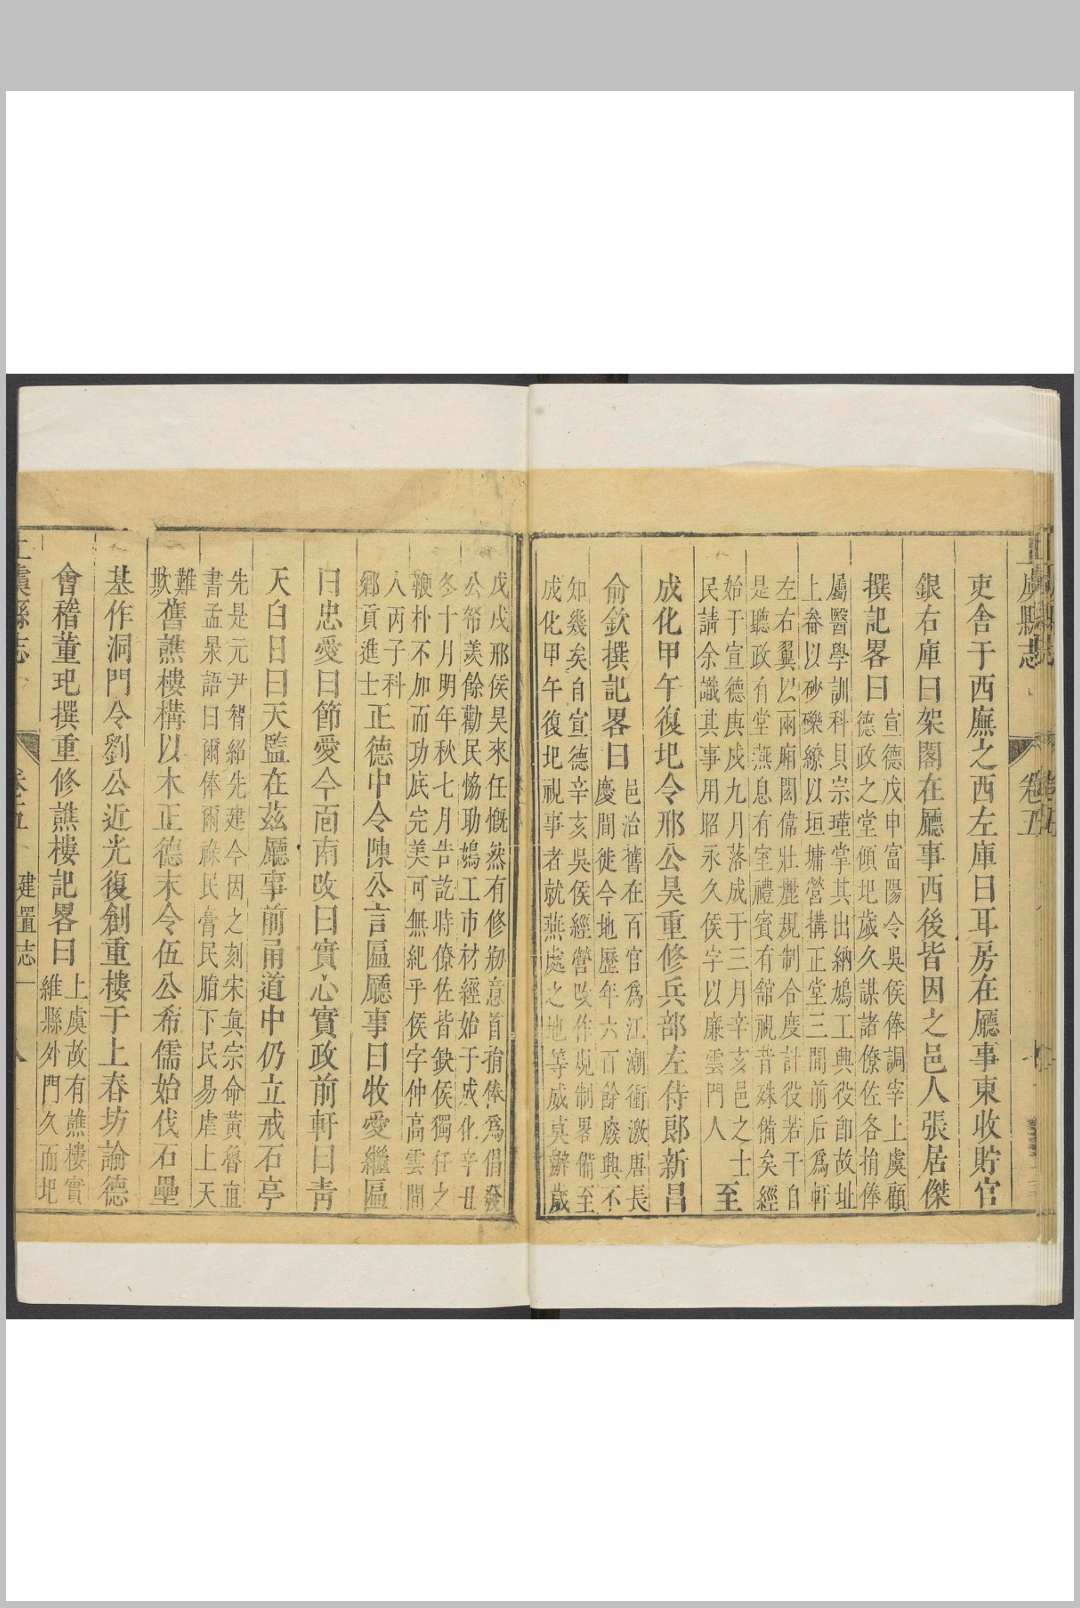 上虞縣志
卷五
吏舍于西廡之西左庫曰耳房在廳事東收貯官
銀右庫曰架閣在廳事西後皆因之邑人張居傑
撰記畧曰
宣德戊申富陽令吳侯俸調宰上虞顧
德政之堂傾圯歲久謀諸僚佐各捐俸
屬醫學訓科貝宗瑾掌其出納鳩工興役卽故址
上畚以砂礫繚以垣墉營構正堂三間前后爲軒
左右翼以兩廂閎偉壯麗規制合度計役若干自
是聽政有堂燕息有室禮賓有舘視昔殊備矣經
始于宣德庚戍九月落成于三月辛亥邑之士
民請余識其事用昭永久侯字以廉雲門人
至
成化甲午復圯令邢公昊重修兵部左侍郞新昌
俞欽撰記畧曰
邑治舊在百官爲江潮衝激唐長
慶間徙今地歷年六百餘廢興不
知幾矣自宣德辛亥吳侯經營改作規制畧備至
成化甲午復圯視事者就燕處之地等威莫辨歲
戊戌邢侯昊來任慨然有修剏意首捐俸爲倡發
公帑羨餘勸民恊助鳩工市材經始于成化辛丑
冬十月明年秋七月告訖時僚佐皆缺侯獨任之
鞭朴不加而功底完美可無紀乎侯字仲高雲間
人丙子科
鄕貢進士
正德中令陳公言匾廳事曰牧愛繼匾
曰忠愛曰節愛今面南改曰實心實政前軒曰靑
天白日曰天監在茲廳事前甬道中仍立戒石亭
先是元尹智紹先建今因之刻宋眞宗命黃魯直
書孟杲語曰爾俸爾祿民膏民脂下民易虐上天
難
欺
舊譙樓構以木正德末令伍公希儒始伐石壘
基作洞門令劉公近光復創重樓于上春坊諭德
會稽董玘撰重修譙樓記畧曰
上虞故有譙樓實
維縣外門久而圯
上虞縣志
卷五
建置志
八